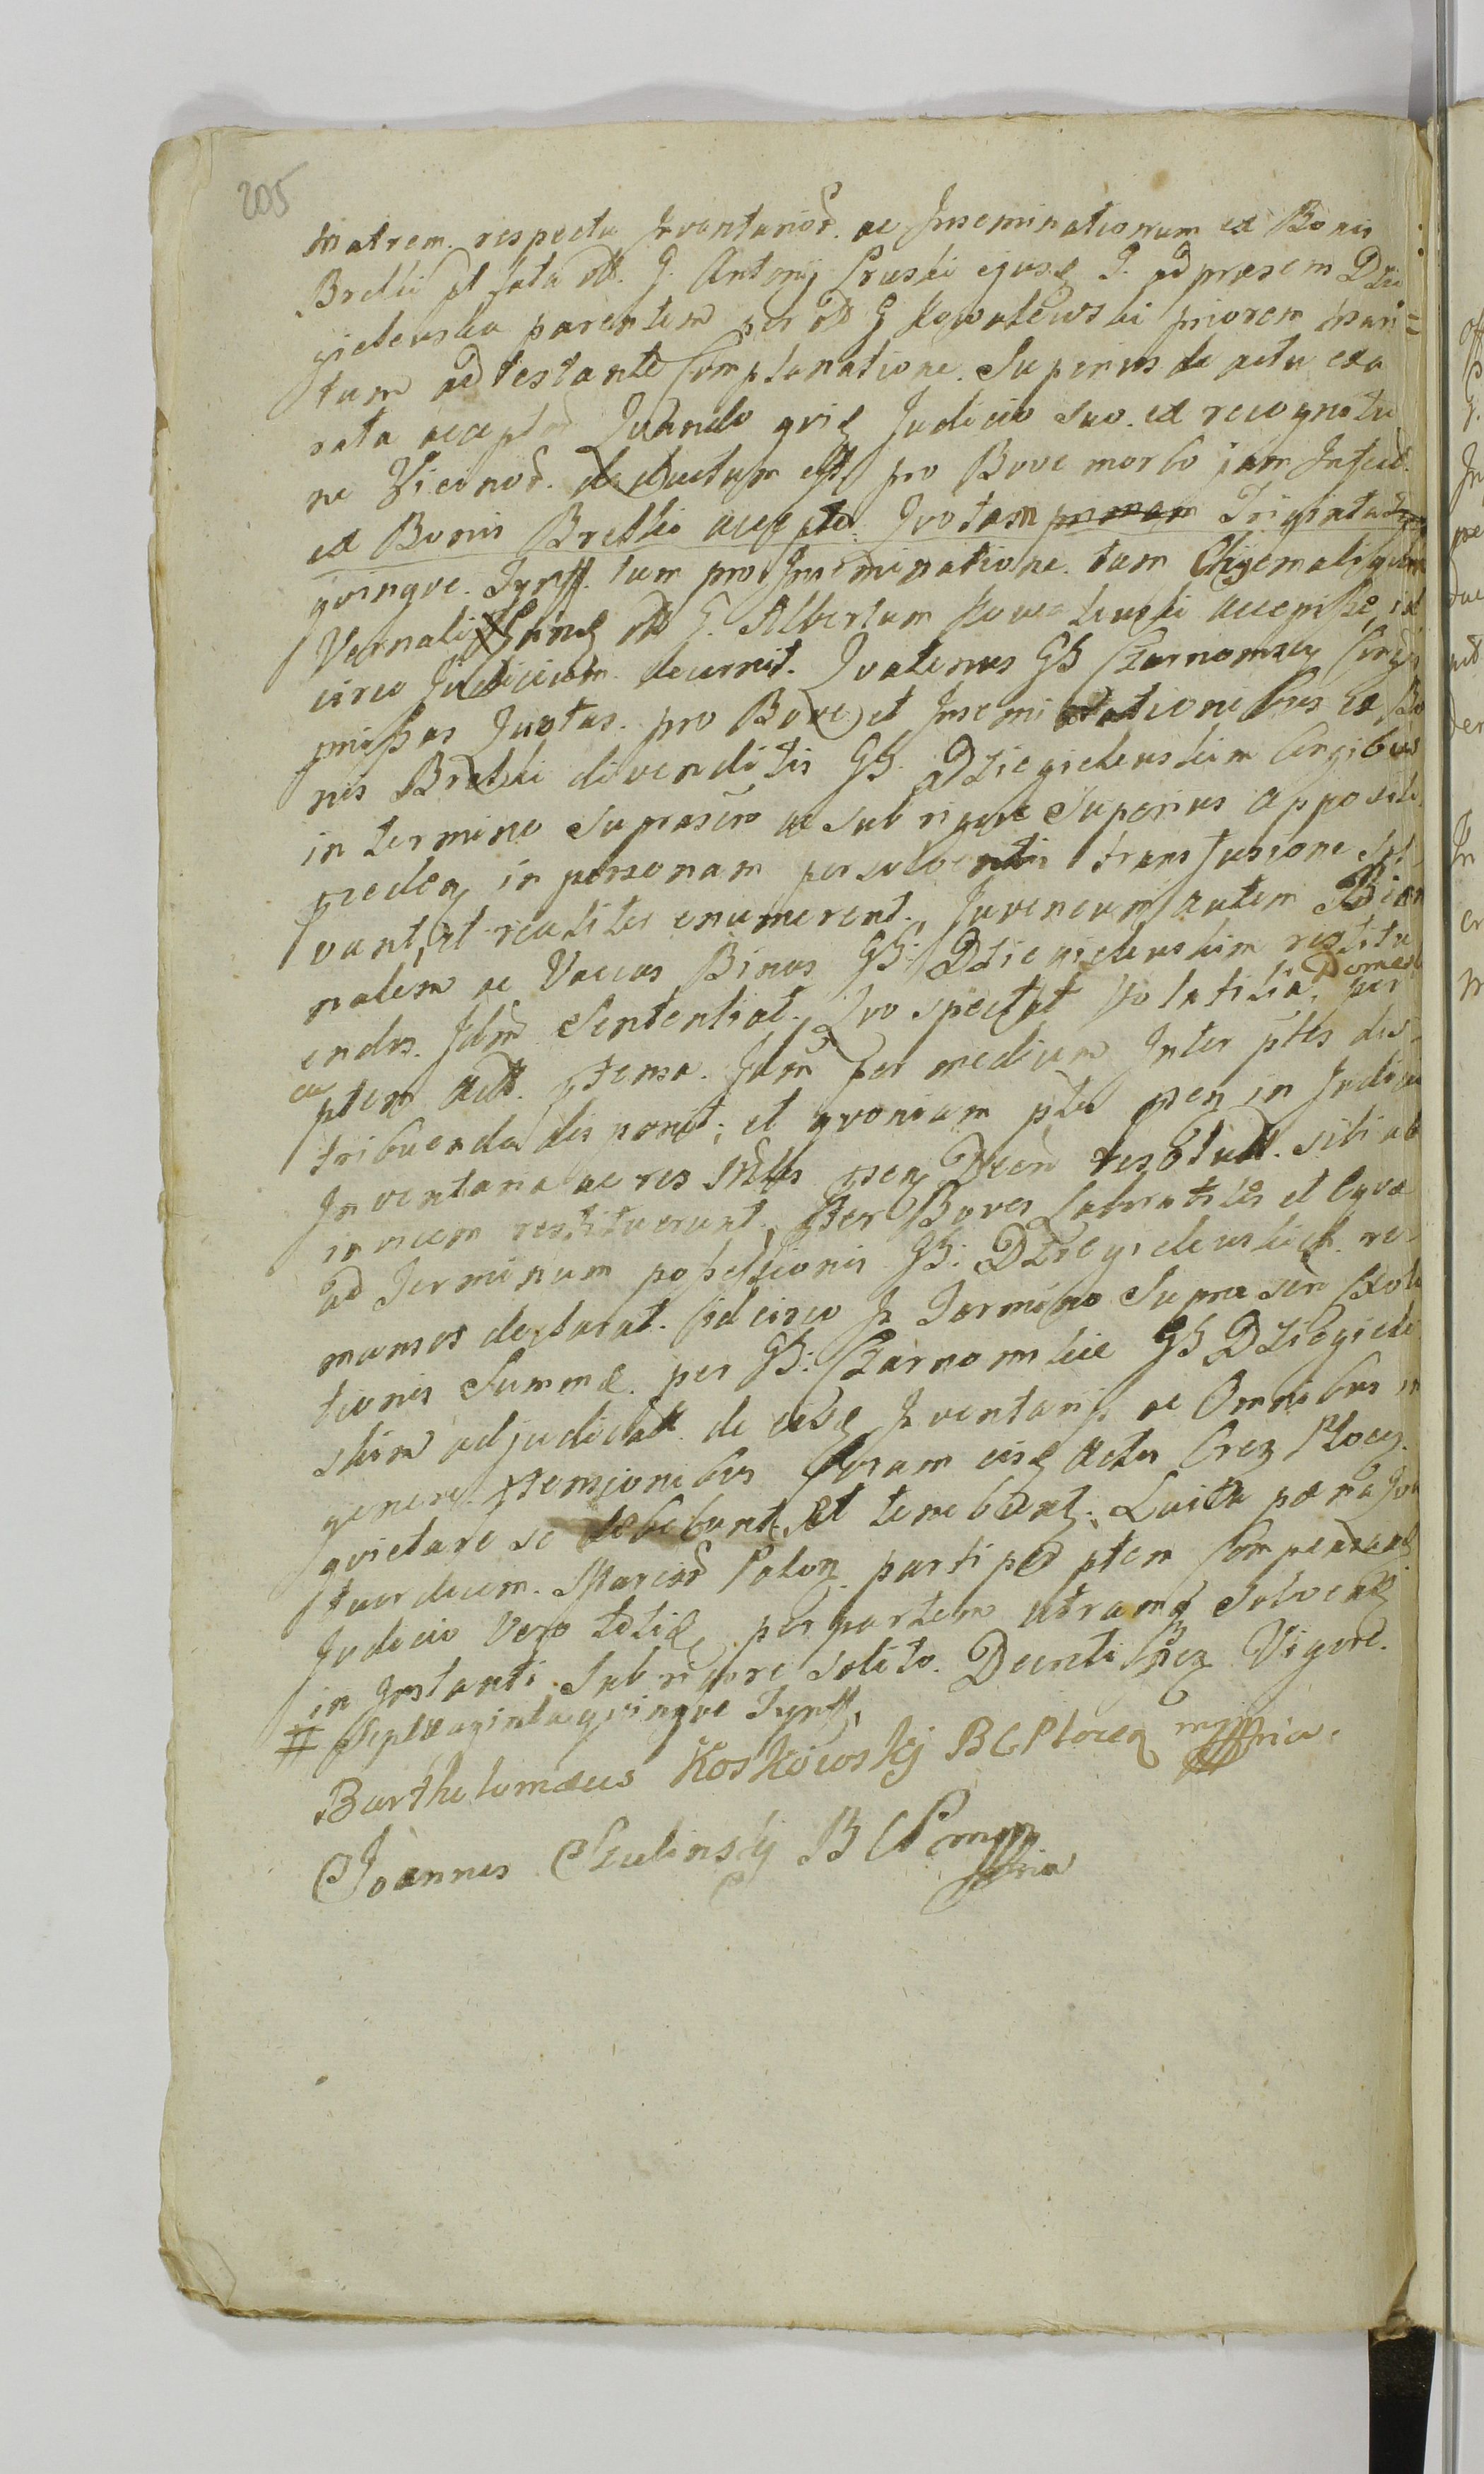 205
Matrem. respectu Inventarior. ac Inseminationum ex Bonis
Bretki pt fata olt. G. Antonij Pruski ejusq G. ad praesens Dzie
gielewska parentem per olt G Kowalewski priorem Mari=
tum adtestante Complanatione. Superius de actu exa
rata acceptor Quando qvis Judicio suo. ex recognitio
ne Vicinor. deductum est, pro Bove morbo jam Infect.
ex Bonis Bretki accepto. Qvotam Triginta
qvinqve. Tynff. tum pro Inseminatione. tam Chyemali qvam
Vernali # olt G. Albertum Kowalewski accepisse, id
circo Judicium decernit. Qvatenus GG Czarnomscy Conju
missas Quotas. pro Bove et Inseminationibus ex Bo
nis Bretki divenditis GG. Dziegielewskim Conjibus
in termino Suprascro ac sub rigore Superius apposito
in personam persolventis transfusione Sol
vant, et realiter enumerent. Juvencum autem Bien
nalem ac Vaccas Binas GG. Dziegielewskim restitu
endos. Idm Sententiat. Qvo spectat Volatilia, Domest
ca per
ptem Act. ptensa. Idm per medium Inter ptes dis=
tribuenda disponit; et qvoniam ptes in Judicio
Inventaria ac res Decr sibi ab
invicem restituerunt, Per Boves Laboratiles et Eqva
ad Terminum possessionis GG. Dziegielewskich. re=
mansos declarat. Idcirco In Termino Suprascr Exolu
tionis Summae. per GG. Czarnomskie GG Dziegiele
wskim adjudicat. de eisq Inventarijs ac Omnibus in
genere. ptensionibus Coram eisq Actis Crez Plocen.
qvietare se debebunt, Et tenebunt. Luita poena Qua
tuordecem. Marcar Polon. parti per ptem Compensand
Judicio Vero talis, per partem utramq Solvend
in Instanti Sub rigore solito. Decreti Vigore.
# Septuagintaqvinqve Tynff.
Bartholomaeus Koskowskj BCPlocen mppria.
Joannes Czulinskj BCP mppria